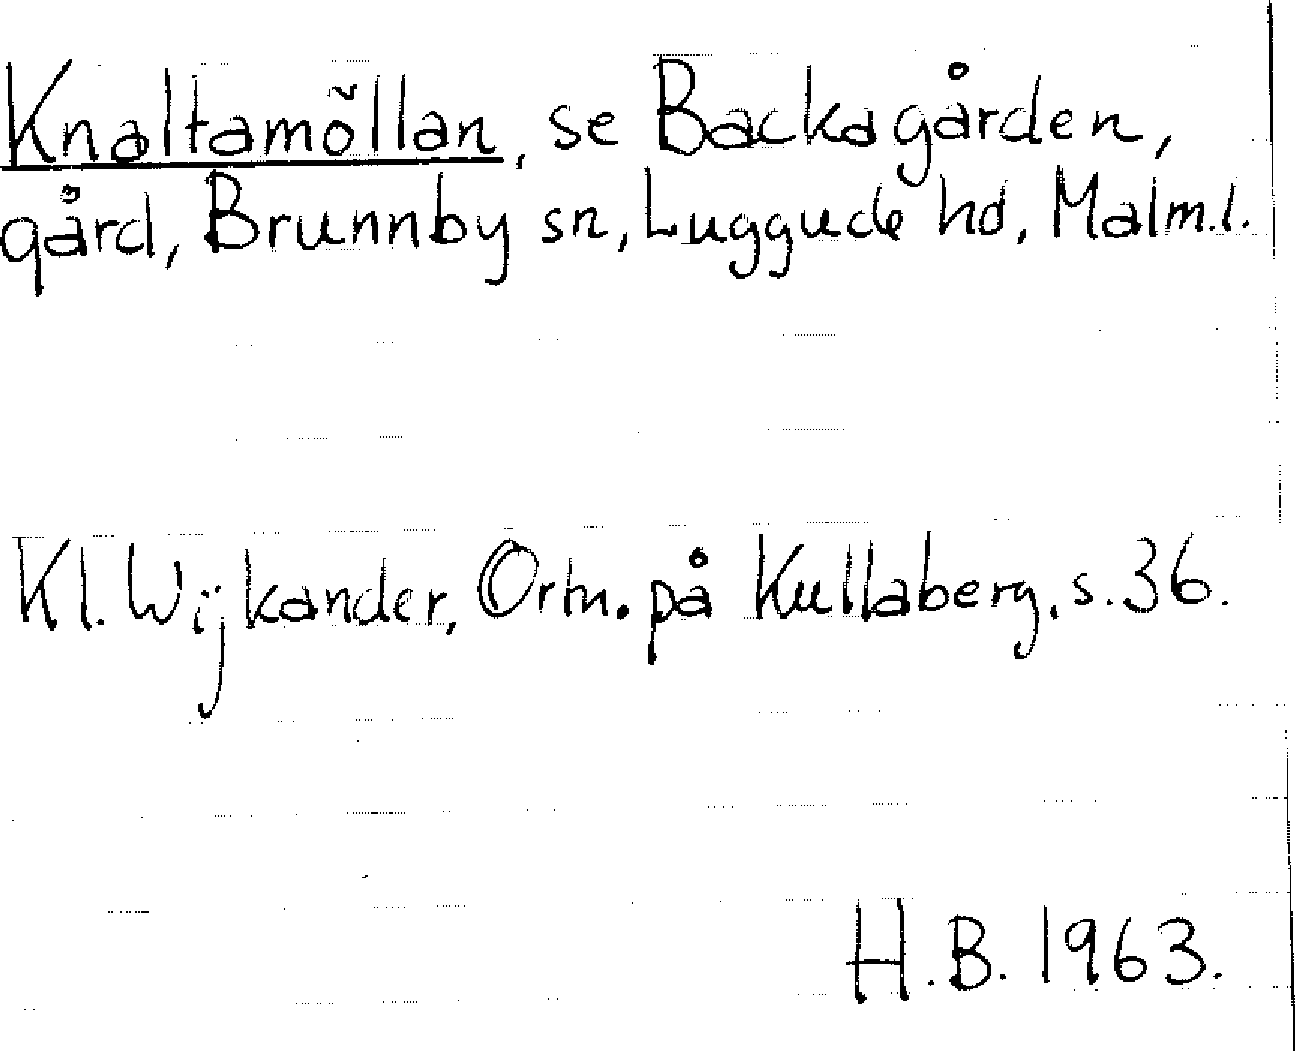 Knaltamöllan, se Backagården,
gård, Brunnby sn, Luggude hd, Malm.l.
Kl. Wijkander, Ortn. på Kullaberg, s. 36.
H.B. 1963.